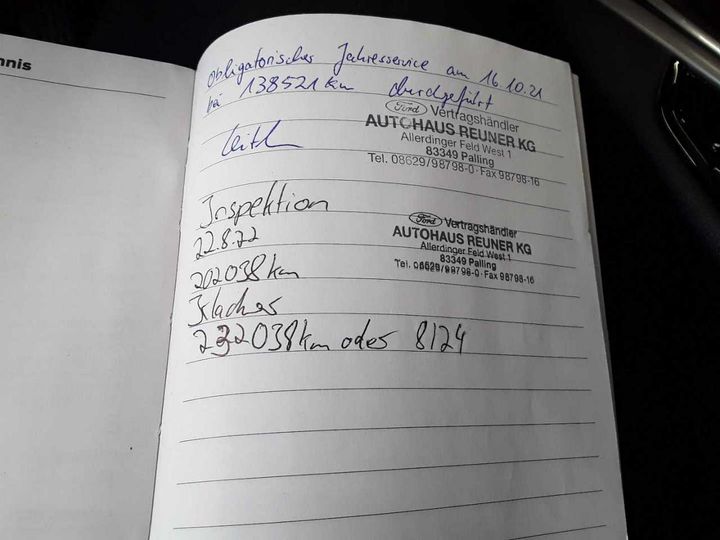 nnis
obligatorisches Jahresservice am 16.10.21
bei 138521 km durchgeführt
Ford Vertragshändler
AUTOHAUS REUNER KG
Allerdinger Feld West 1
83349 Palling
Tel. 08629/98798-0 · Fax 98798-16
Inspektion
22.8.22
202038km
Ford Vertragshändler
AUTOHAUS REUNER KG
Allerdinger Feld West 1
83349 Palling
Tel. 08629/98798-0 · Fax 98798-16
232038km oder 8/24